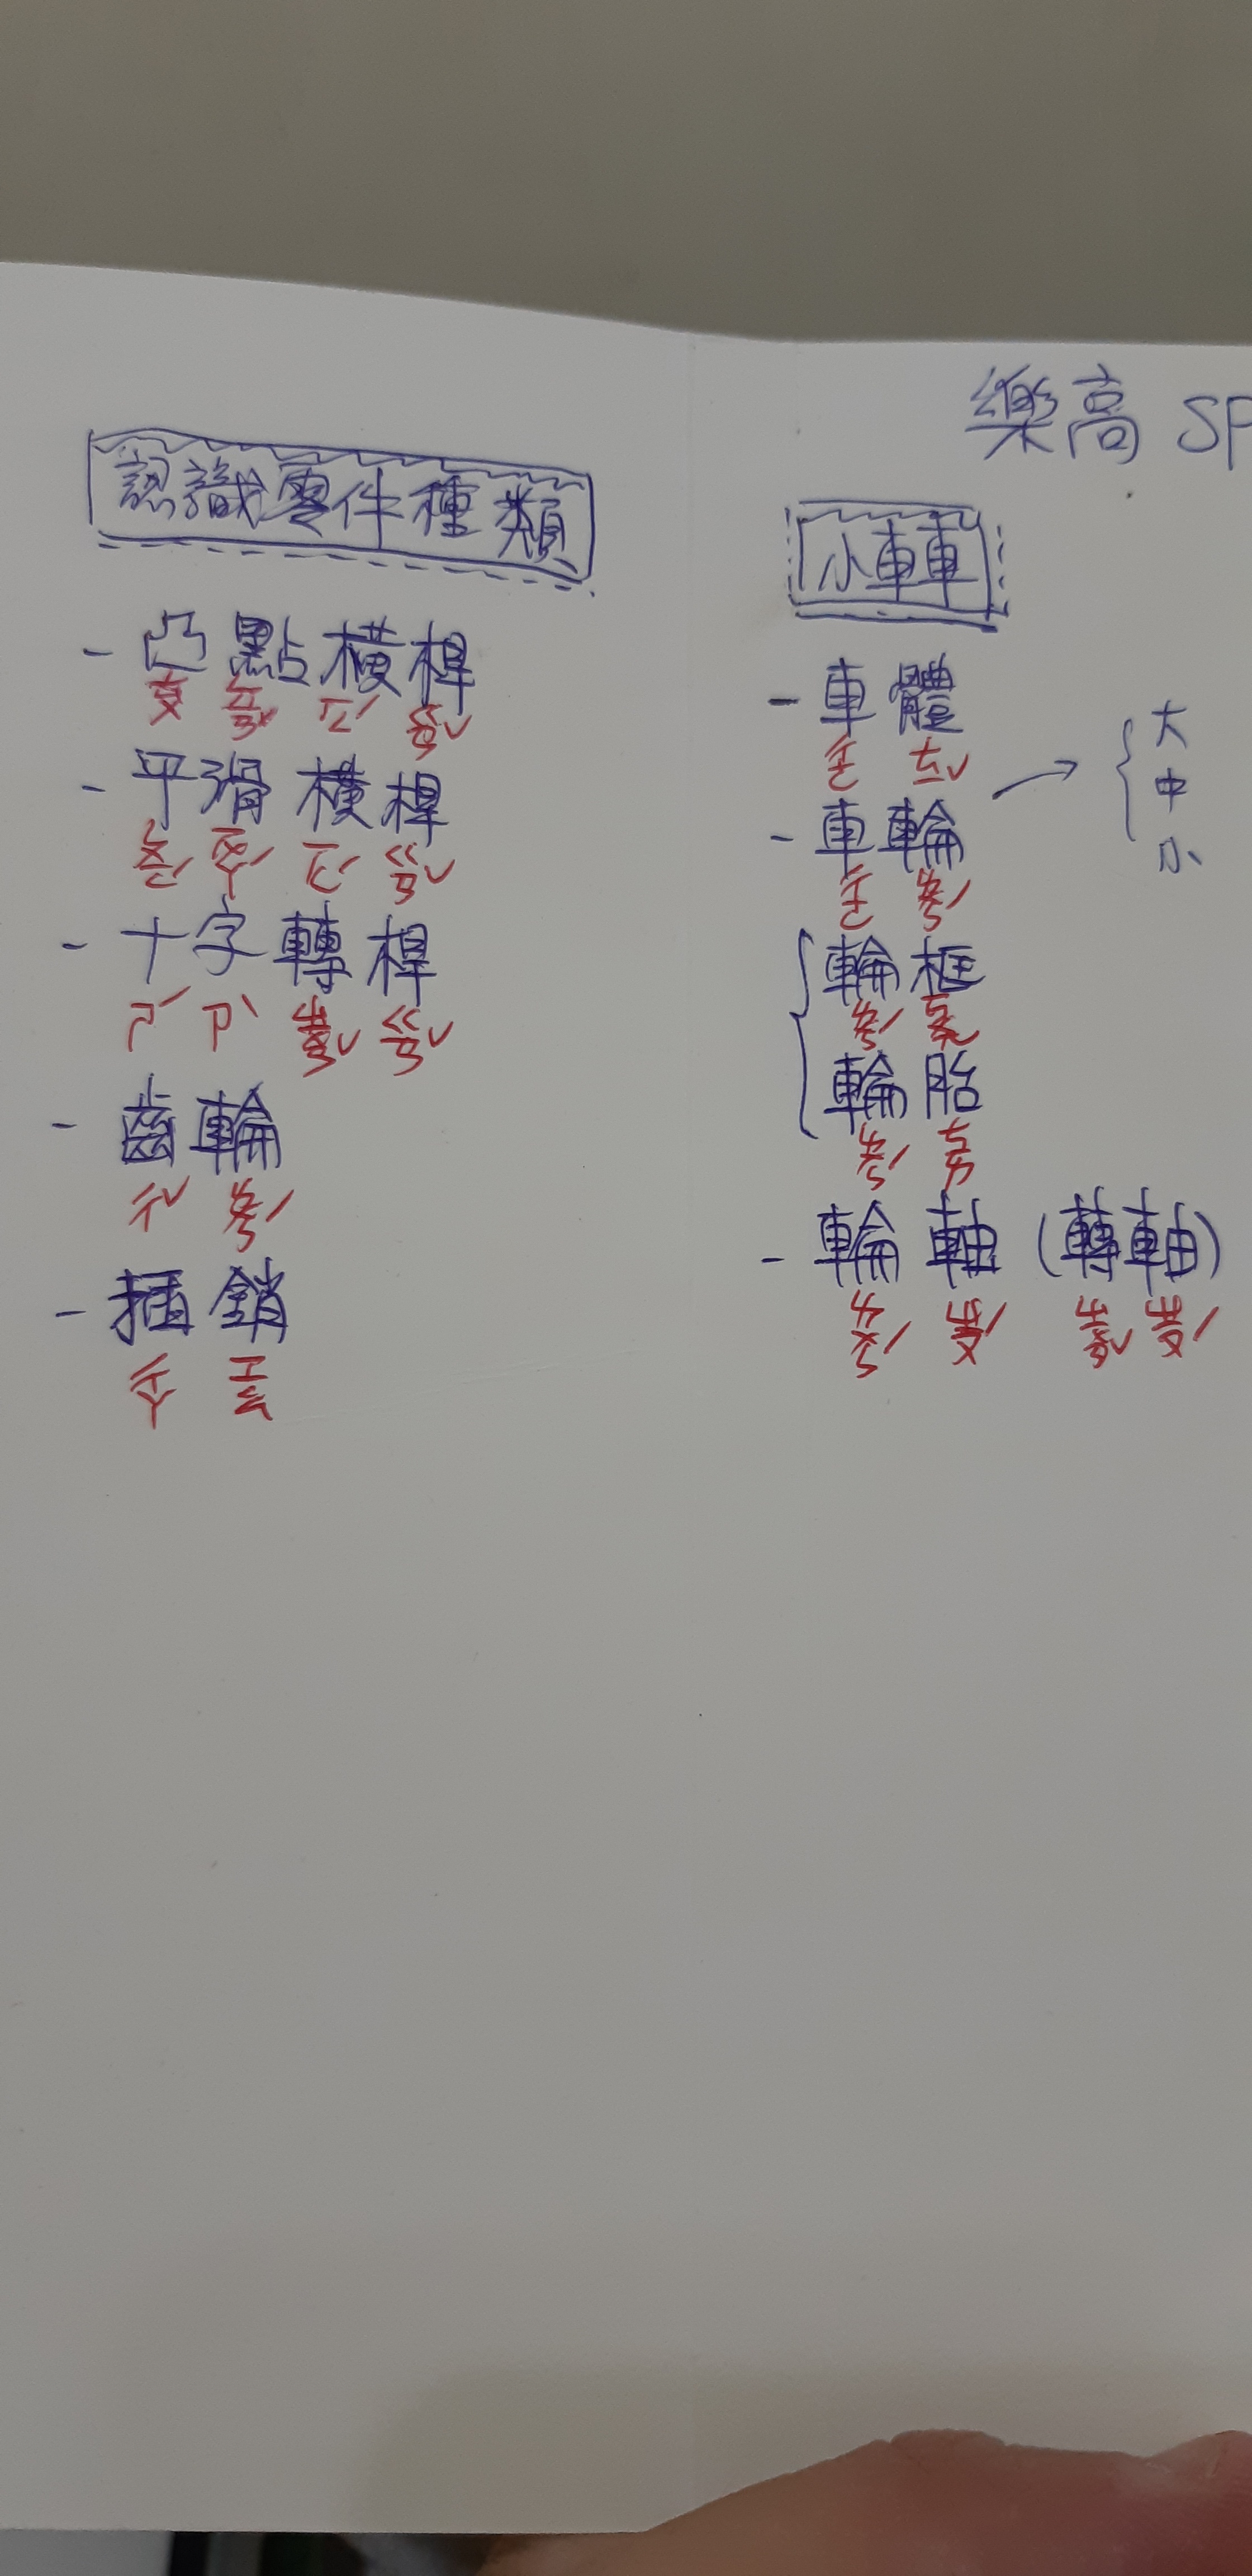 認識零件種類
- 凸點橫桿
ㄊㄨ ㄉㄧㄢˇ ㄏㄥˊ ㄍㄢˇ
- 平滑橫桿
ㄆㄧㄥˊ ㄏㄨㄚˊ ㄏㄥˊ ㄍㄢˇ
- 十字轉桿
ㄕˊ ㄗˋ ㄓㄨㄢˇ ㄍㄢˇ
- 齒輪
ㄔˇ ㄌㄨㄣˊ
- 插銷
ㄔㄚ ㄒㄧㄠ
樂高 SP
小車車
- 車體
ㄔㄜ ㄊㄧˇ
- 車輪
ㄔㄜ ㄌㄨㄣˊ
大
中
小
輪框
ㄌㄨㄣˊ ㄎㄨㄤ
輪胎
ㄌㄨㄣˊ ㄊㄞ
- 輪軸 (轉軸)
ㄌㄨㄣˊ ㄓㄡˊ ㄓㄨㄢˇ ㄓㄡˊ